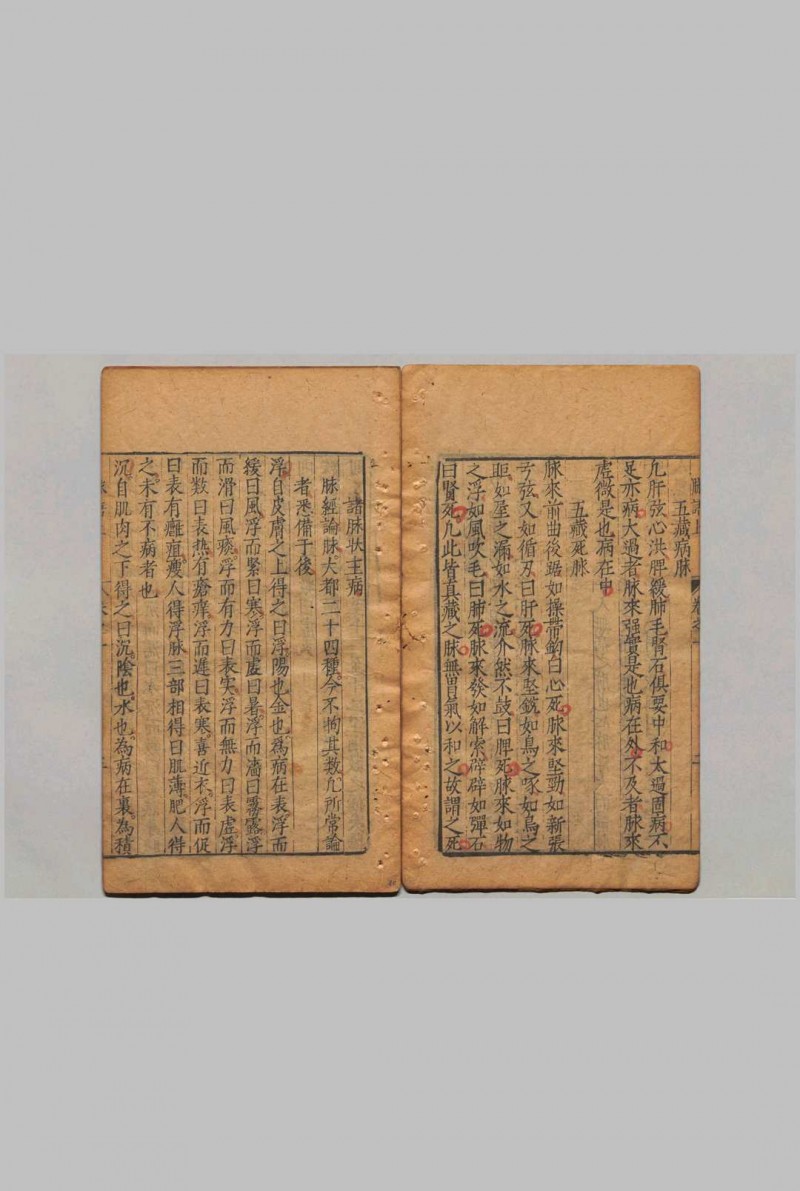 五藏病脉
凢肝弦心洪脾緩肺毛腎石俱要中和太過固病不
足亦病大過者脉來强實是也病在外不及者脉來
虚微是也病在中
五藏死脉
脉來前曲後踞如操帶鈎曰心死脉來坚勁如新張
弓弦又如循刃曰肝死脉來坚銳如鳥之啄如鳥之
距如屋之漏如水之流介然不鼓曰脾死脉來如物
之浮如風吹毛曰肺死脉來發如解索辟辟如彈石
曰腎死凢此皆真藏之脉無胃氣以和之故謂之死
諸脉状主病
脉經論脉大都二十四種今不拘其数凢所常論
者悉備于後
浮自皮膚之上得之曰浮陽也金也為病在表浮而
緩曰風浮而緊曰寒浮而虚曰暑浮而濇曰霧露浮
而滑曰風痰浮而有力曰表实浮而無力曰表虚浮
而数曰表热有瘡痒浮而遲曰表寒喜近衣浮而促
曰表有癰疽瘦人得浮脉三部相得曰肌薄肥人得
之未有不病者也
沉自肌肉之下得之曰沉陰也水也為病在裏為積